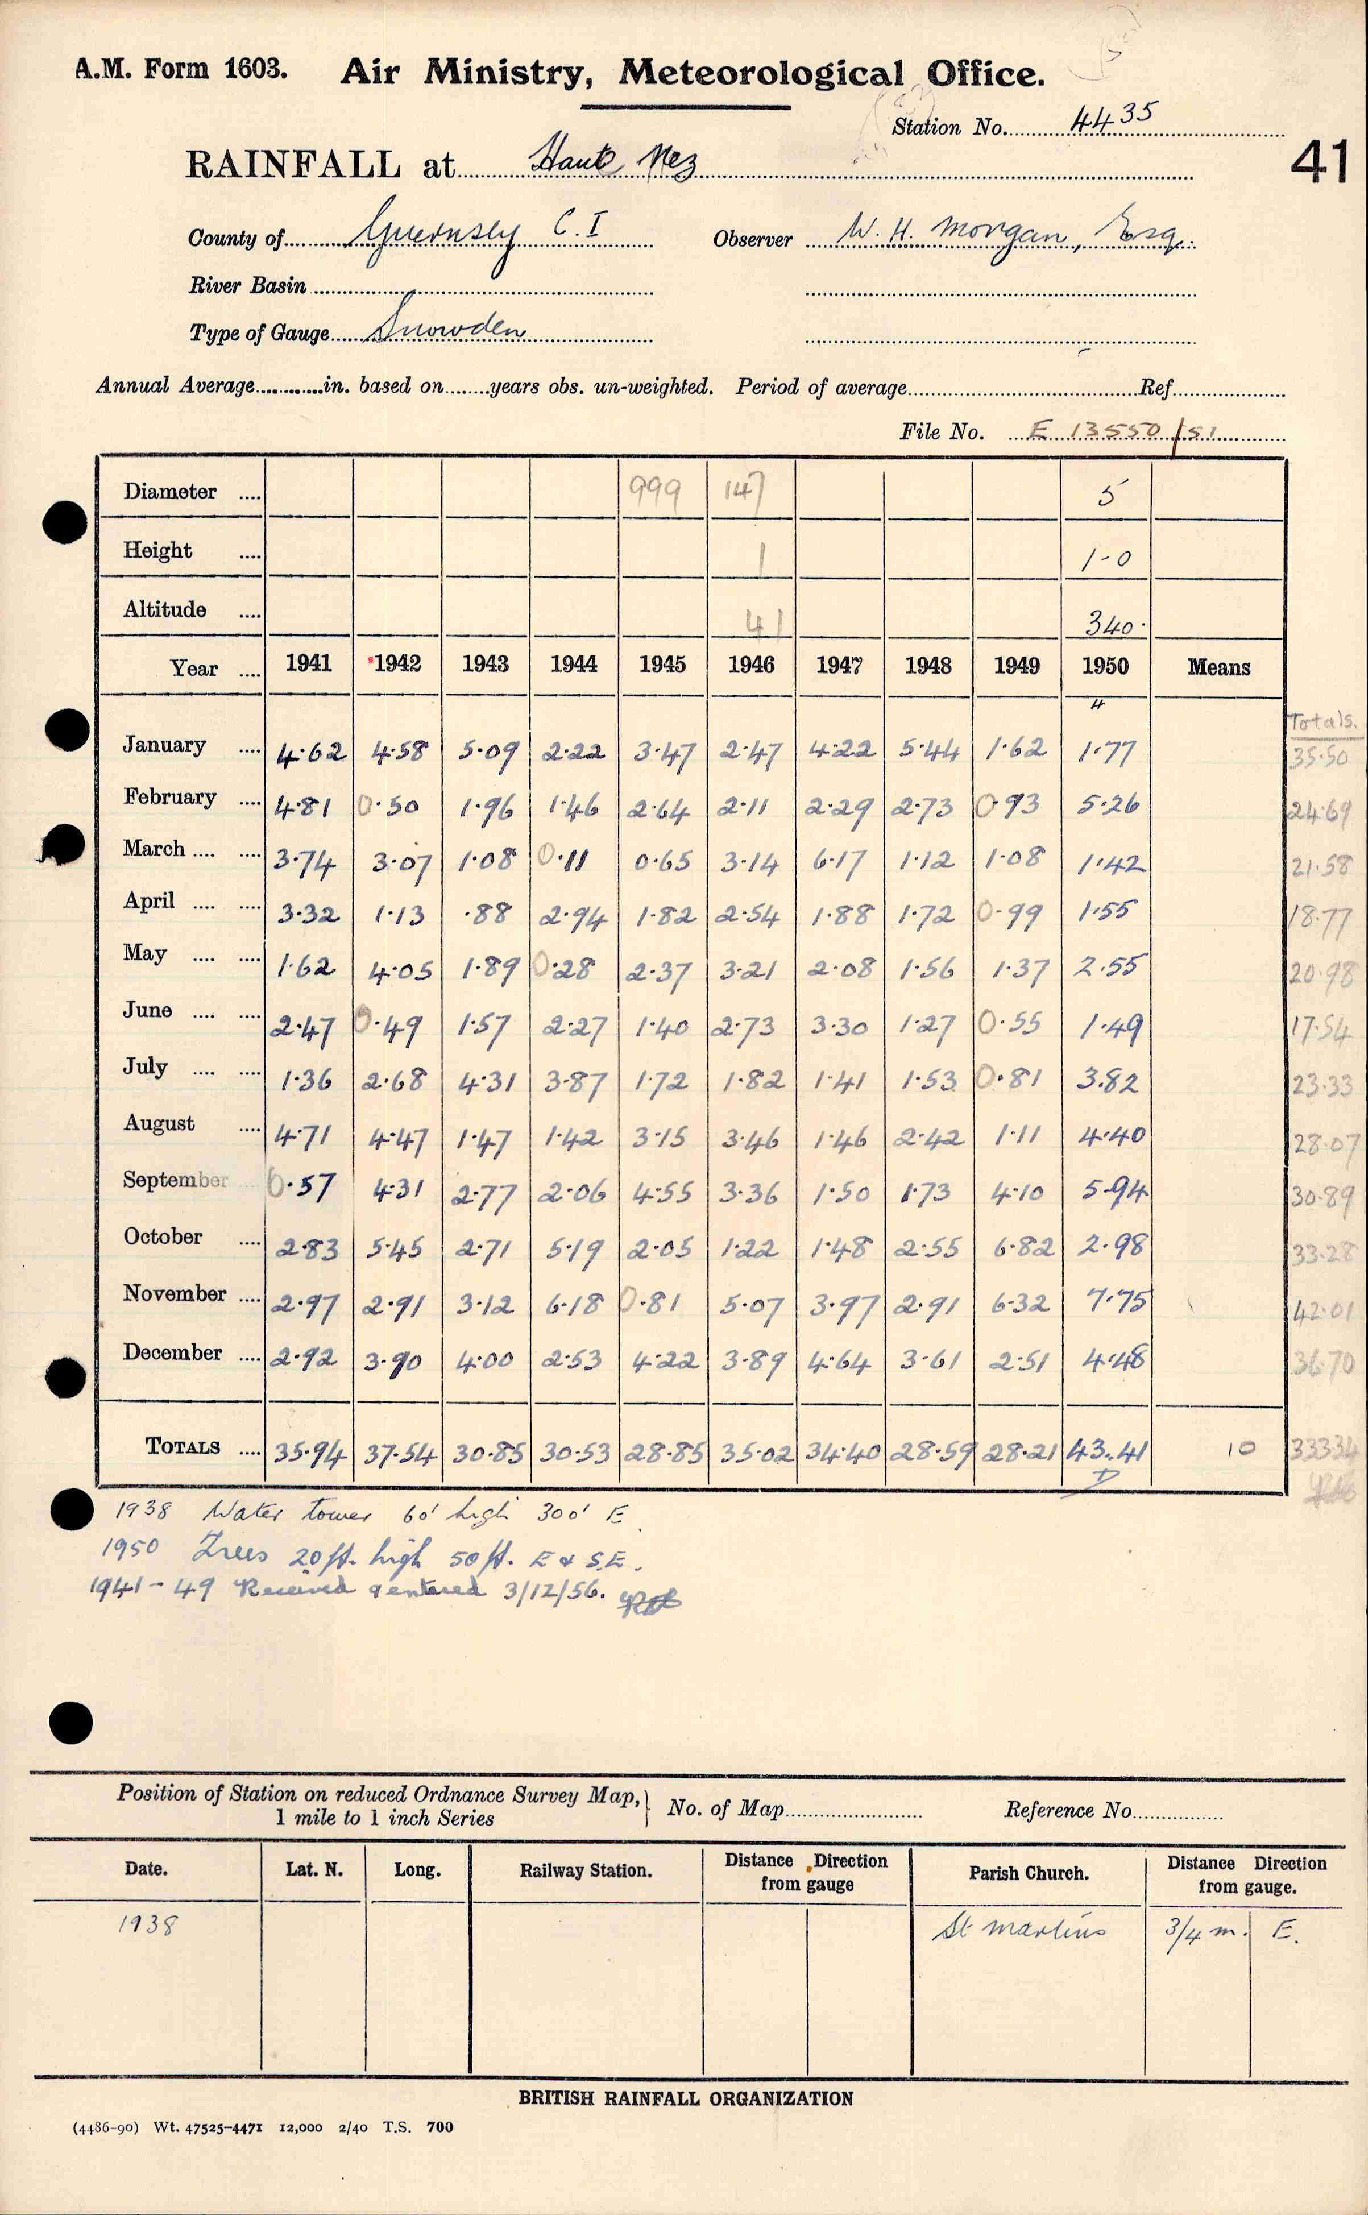 A.M. Form 1603. Air Ministry, Meteorological Office.
Station No. 4435
RAINFALL at Haut Nez
41
County of Guernsey C.I Observer W. H. Morgan, Esq.
River Basin
Type of Gauge Snowden
Annual Average in. based on years obs. un-weighted. Period of average Ref
File No. E 13550/51
Diameter 999 147 5
Height 1 1-0
Altitude 41 340.
Year 1941 1942 1943 1944 1945 1946 1947 1948 1949 1950 Means
Totals.
January 4.62 4.58 5.09 2.22 3.47 2.47 4.22 5.44 1.62 1.77 35.50
February 4.81 0.50 1.96 1.46 2.64 2.11 2.29 2.73 0.93 5.26 24.69
March 3.74 3.07 1.08 0.11 0.65 3.14 6.17 1.12 1.08 1.42 21.58
April 3.32 1.13 .88 2.94 1.82 2.54 1.88 1.72 0.99 1.55 18.77
May 1.62 4.05 1.89 0.28 2.37 3.21 2.08 1.56 1.37 2.55 20.98
June 2.47 0.49 1.57 2.27 1.40 2.73 3.30 1.27 0.55 1.49 17.54
July 1.36 2.68 4.31 3.87 1.72 1.82 1.41 1.53 0.81 3.82 23.33
August 4.71 4.47 1.47 1.42 3.15 3.46 1.46 2.42 1.11 4.40 28.07
September 0.57 4.31 2.77 2.06 4.55 3.36 1.50 1.73 4.10 5.94 30.89
October 2.83 5.45 2.71 5.19 2.05 1.22 1.48 2.55 6.82 2.98 33.28
November 2.97 2.91 3.12 6.18 0.81 5.07 3.97 2.91 6.32 7.75 42.01
December 2.92 3.90 4.00 2.53 4.22 3.89 4.64 3.61 2.51 4.48 36.70
TOTALS 35.94 37.54 30.85 30.53 28.85 35.02 34.40 28.59 28.21 43.41 10 333.34
1938 Water tower 60' high 300' E.
1950 Trees 20ft. high 50ft. E & S.E.
1941-49 Received & entered 3/12/56.
Position of Station on reduced Ordnance Survey Map,
1 mile to 1 inch Series
No. of Map Reference No
Date. Lat. N. Long. Railway Station. Distance Direction from gauge Parish Church. Distance Direction from gauge.
1938 St Martins 3/4 m. E.
BRITISH RAINFALL ORGANIZATION
(4486-90) Wt. 47525-4471 12,000 2/40 T.S. 700